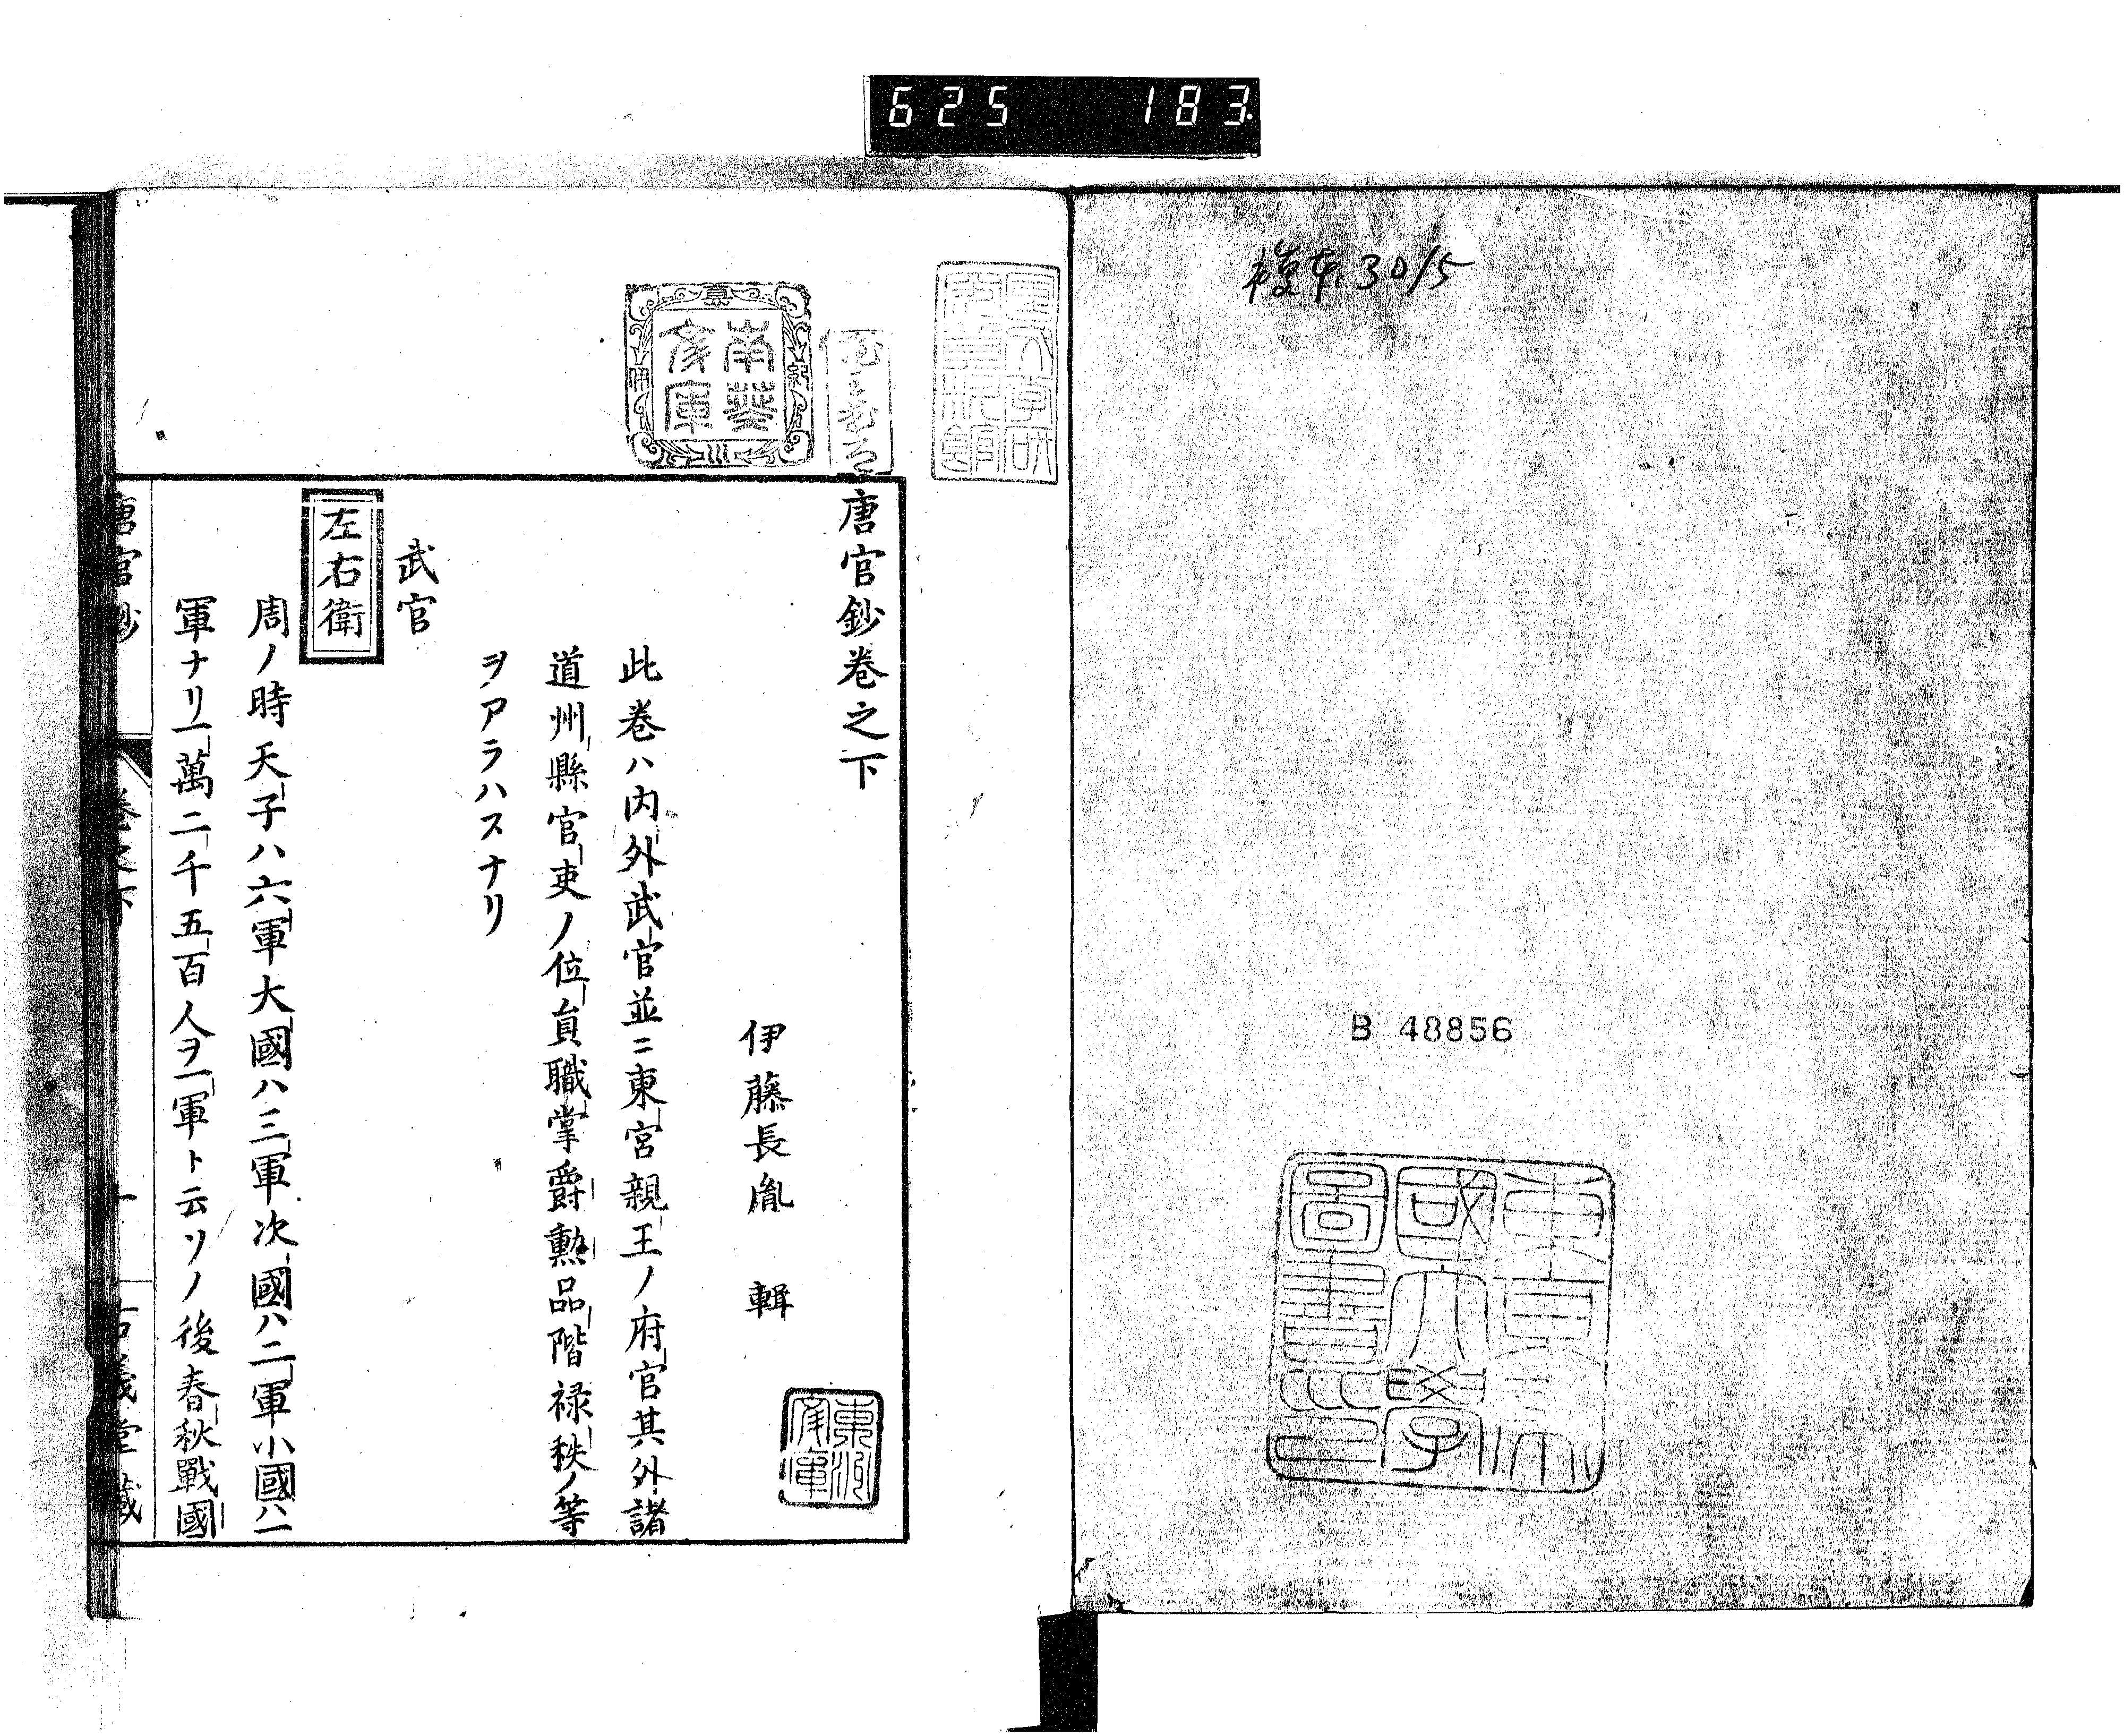 625 183
複本3015
B 48856
東京帝
國大學
圖書印
南葵
文庫
唐官鈔卷之下
伊藤長胤 輯
此卷ハ内外武官並ニ東宮親王ノ府官其外諸
道州縣官吏ノ位員職掌爵勲品階禄秩ノ等
ヲアラハスナリ
武官
左右衛
周ノ時天子ハ六軍大國ハ三軍次國ハ二軍小國ハ一
軍ナリ一萬二千五百人ヲ一軍ト云ソノ後春秋戰國
唐官鈔 卷之下 一 古義堂藏